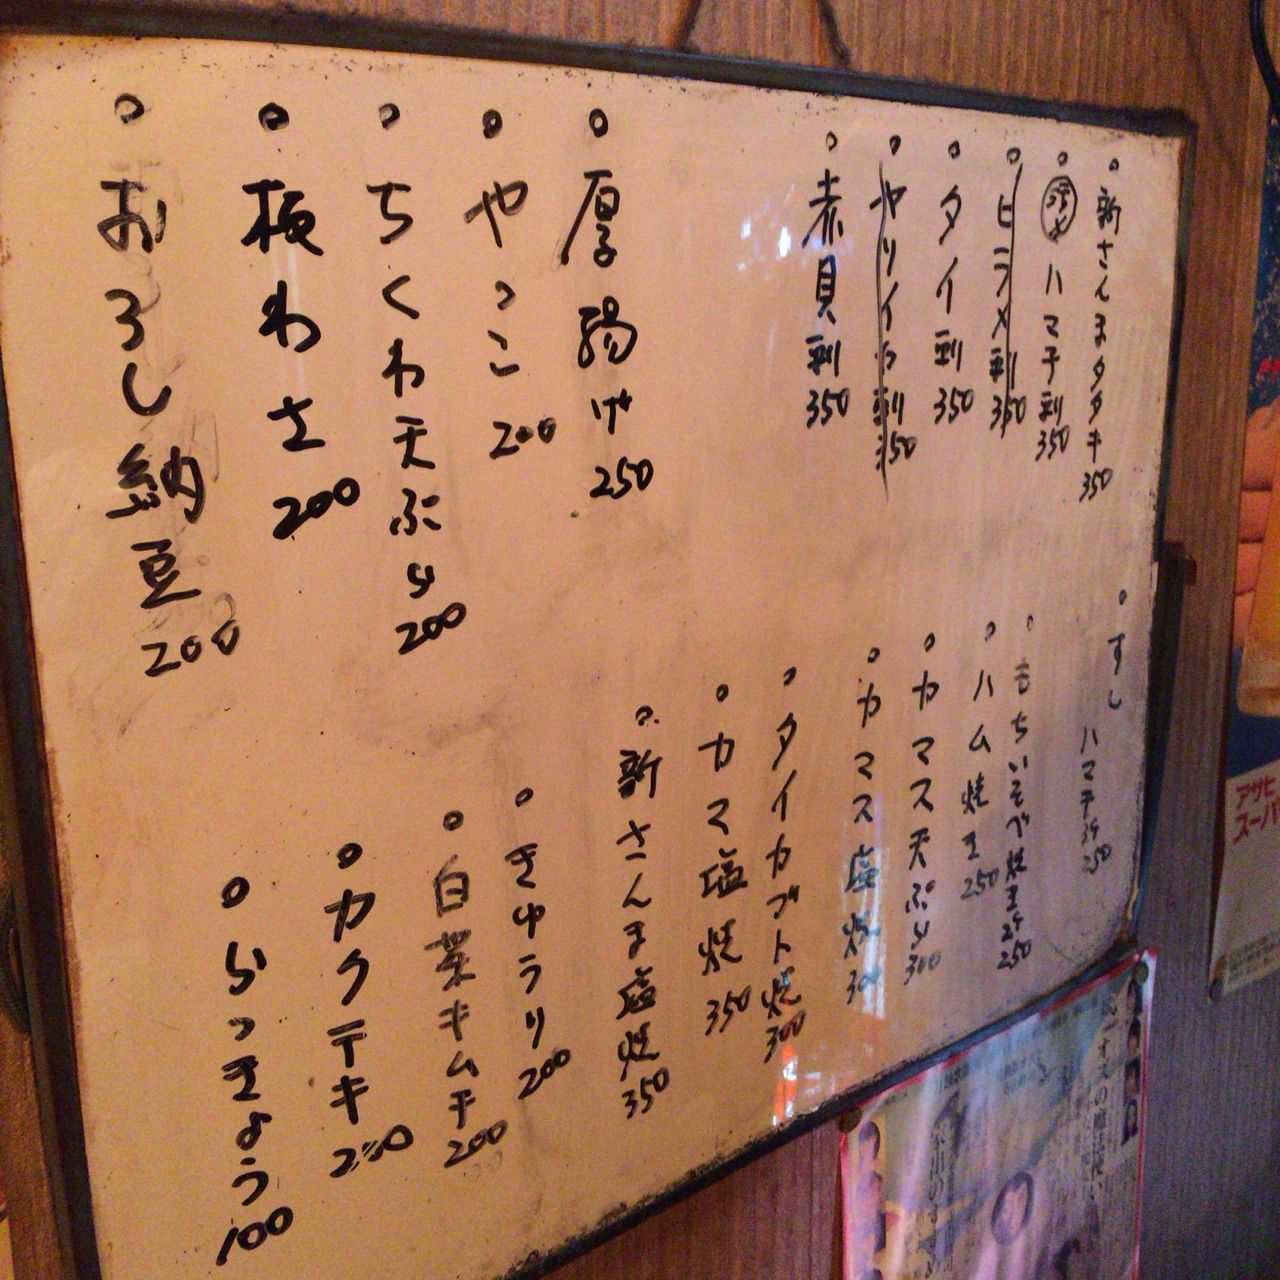 新さんまタタキ 350
ハマチ刺 350
ヒラメ刺 350
タイ刺 350
ヤリイカ刺 350
赤貝刺 350
厚揚げ 250
やっこ 200
ちくわ天ぷら 200
板わさ 200
おろし納豆 200
すし ハマチ 2ケ 250
もちいそべ焼き 2ケ 250
ハム焼き 250
カマス天ぷら 300
カマス塩焼 300
タイカブト焼 300
カマ塩焼 350
新さんま塩焼 350
きゅうり 200
白菜キムチ 200
カクテキ 250
らっきょう 100
アサヒ
スーパ